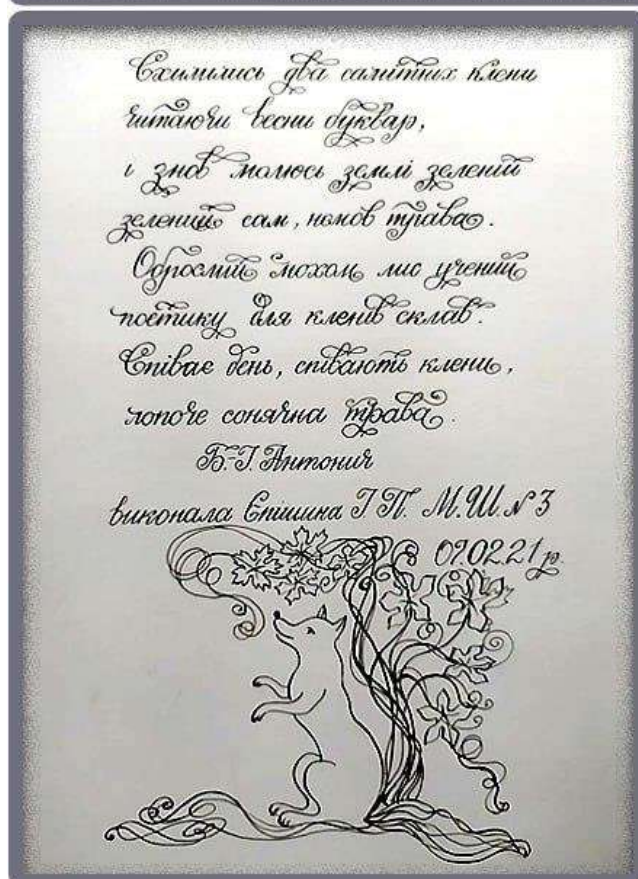 Схилились два самітних клени
читаючи весни буквар,
і знов молюсь землі зеленій
зелений сам, немов трава.
Оброслий мохом лис учений
поетику для кленів склав.
Співає день, співають клени,
лопоче сонячна трава.
Б.-І. Антонич
виконала Єпішина І П. М.Ш. №3
09.02.21р.